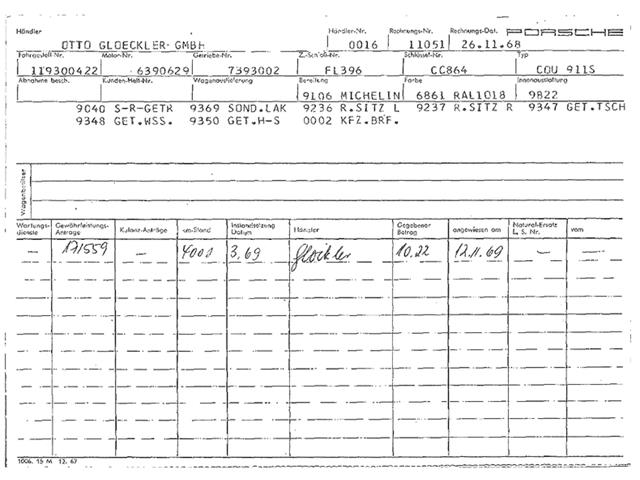 Händler Händler-Nr. Rechnungs-Nr. Rechnungs-Dat. PORSCHE
OTTO GLOECKLER GMBH 0016 11051 26.11.68
Fahrgestell-Nr. Motor-Nr. Getriebe-Nr. Z.-Schloß-Nr. Schlüssel-Nr. Typ
119300422 6390629 7393002 FL396 CC864 COU 911S
Abnahme besch. Kunden-Heft-Nr. Wagenauslieferung Bereifung Farbe Innenausstattung
9106 MICHELIN 6861 RAL1018 9B22
9040 S-R-GETR 9369 SOND.LAK 9236 R.SITZ L 9237 R.SITZ R 9347 GET.TSCH
9348 GET.WSS. 9350 GET.H-S 0002 KFZ.BRF.
Wagenbesitzer
Wartungs- Gewährleistungs- Kulanz-Anträge km-Stand Instandsetzung Händler Gegebener angewiesen am Natural-Ersatz vom
dienste Anträge Datum Betrag L. S. Nr.
— 171559 — 4000 3.69 Glöckler 10.22 12.11.69 — —
1006. 15 M 12. 67